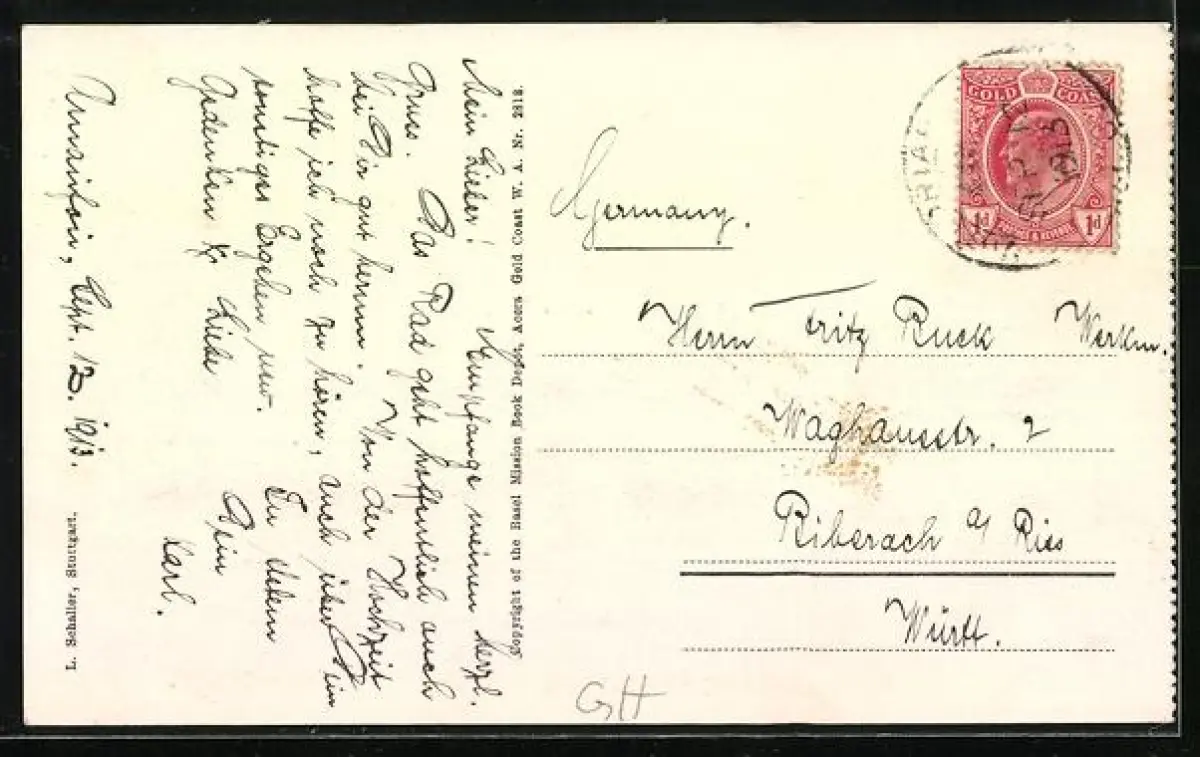 Mein Lieber! Empfange meinen herzl.
Gruss. Das Rad geht hoffentlich auch
bei Dir gut herum. Von der Hochzeit
hoffe ich noch zu hören, auch über Dein
sonstiges Ergehen usw. In stetem
Gedenken Liebe
Dein
Karl.
Sept. 12. 1913.
L. Schaller, Stuttgart.
Copyright of the Basel Mission Book Depot, Accra Gold Coast W. A. Nr. 2818.
GOLD COAST
1d POSTAGE & REVENUE 1d
1913
Germany.
Herrn Fritz Ruck Werkm.
Waghausstr. 2
Biberach a/ Riss
Württ.
GH